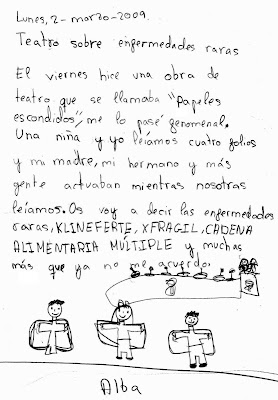 Lunes, 2-marzo-2009.
Teatro sobre enfermedades raras
El viernes hice una obra de
teatro que se llamaba "Papeles
escondidos", me lo pasé genomenal.
Una niña y yo leíamos cuatro folios
y mi madre, mi hermano y más
gente actuaban mientras nosotras
leíamos. Os voy a decir las enfermedades
raras, KLINEFERTE, XFRAGIL, CADENA
ALIMENTARIA MÚLTIPLE y muchas
más que ya no me acuerdo.
Alba